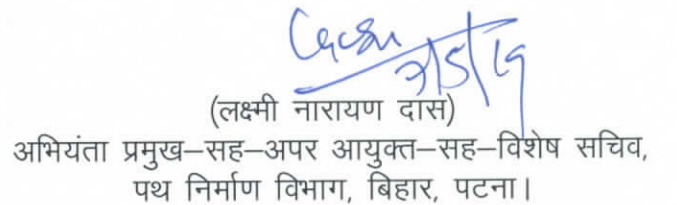 7/5/19
(लक्ष्मी नारायण दास)
अभियंता प्रमुख–सह–अपर आयुक्त–सह–विशेष सचिव,
पथ निर्माण विभाग, बिहार, पटना।